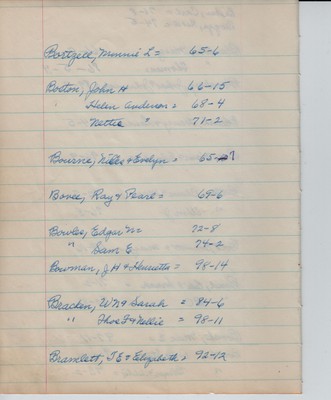 Bortzell, Minnie L = 65-6
Boston, John H 66-15
" Helen Anderson = 68-4
Nettie " 71-2
Bourne, & Evelyn = 65-7
Bovee, Ray & Pearl = 69-6
Bowles, Edgar M 72-8
" Sam E 74-2
Bowman, J H & Henrietta = 98-14
Bracken, W N & Sarah = 84-6
" Thos F & Nellie = 98-11
Bramlett, J E & Elizabeth = 92-12